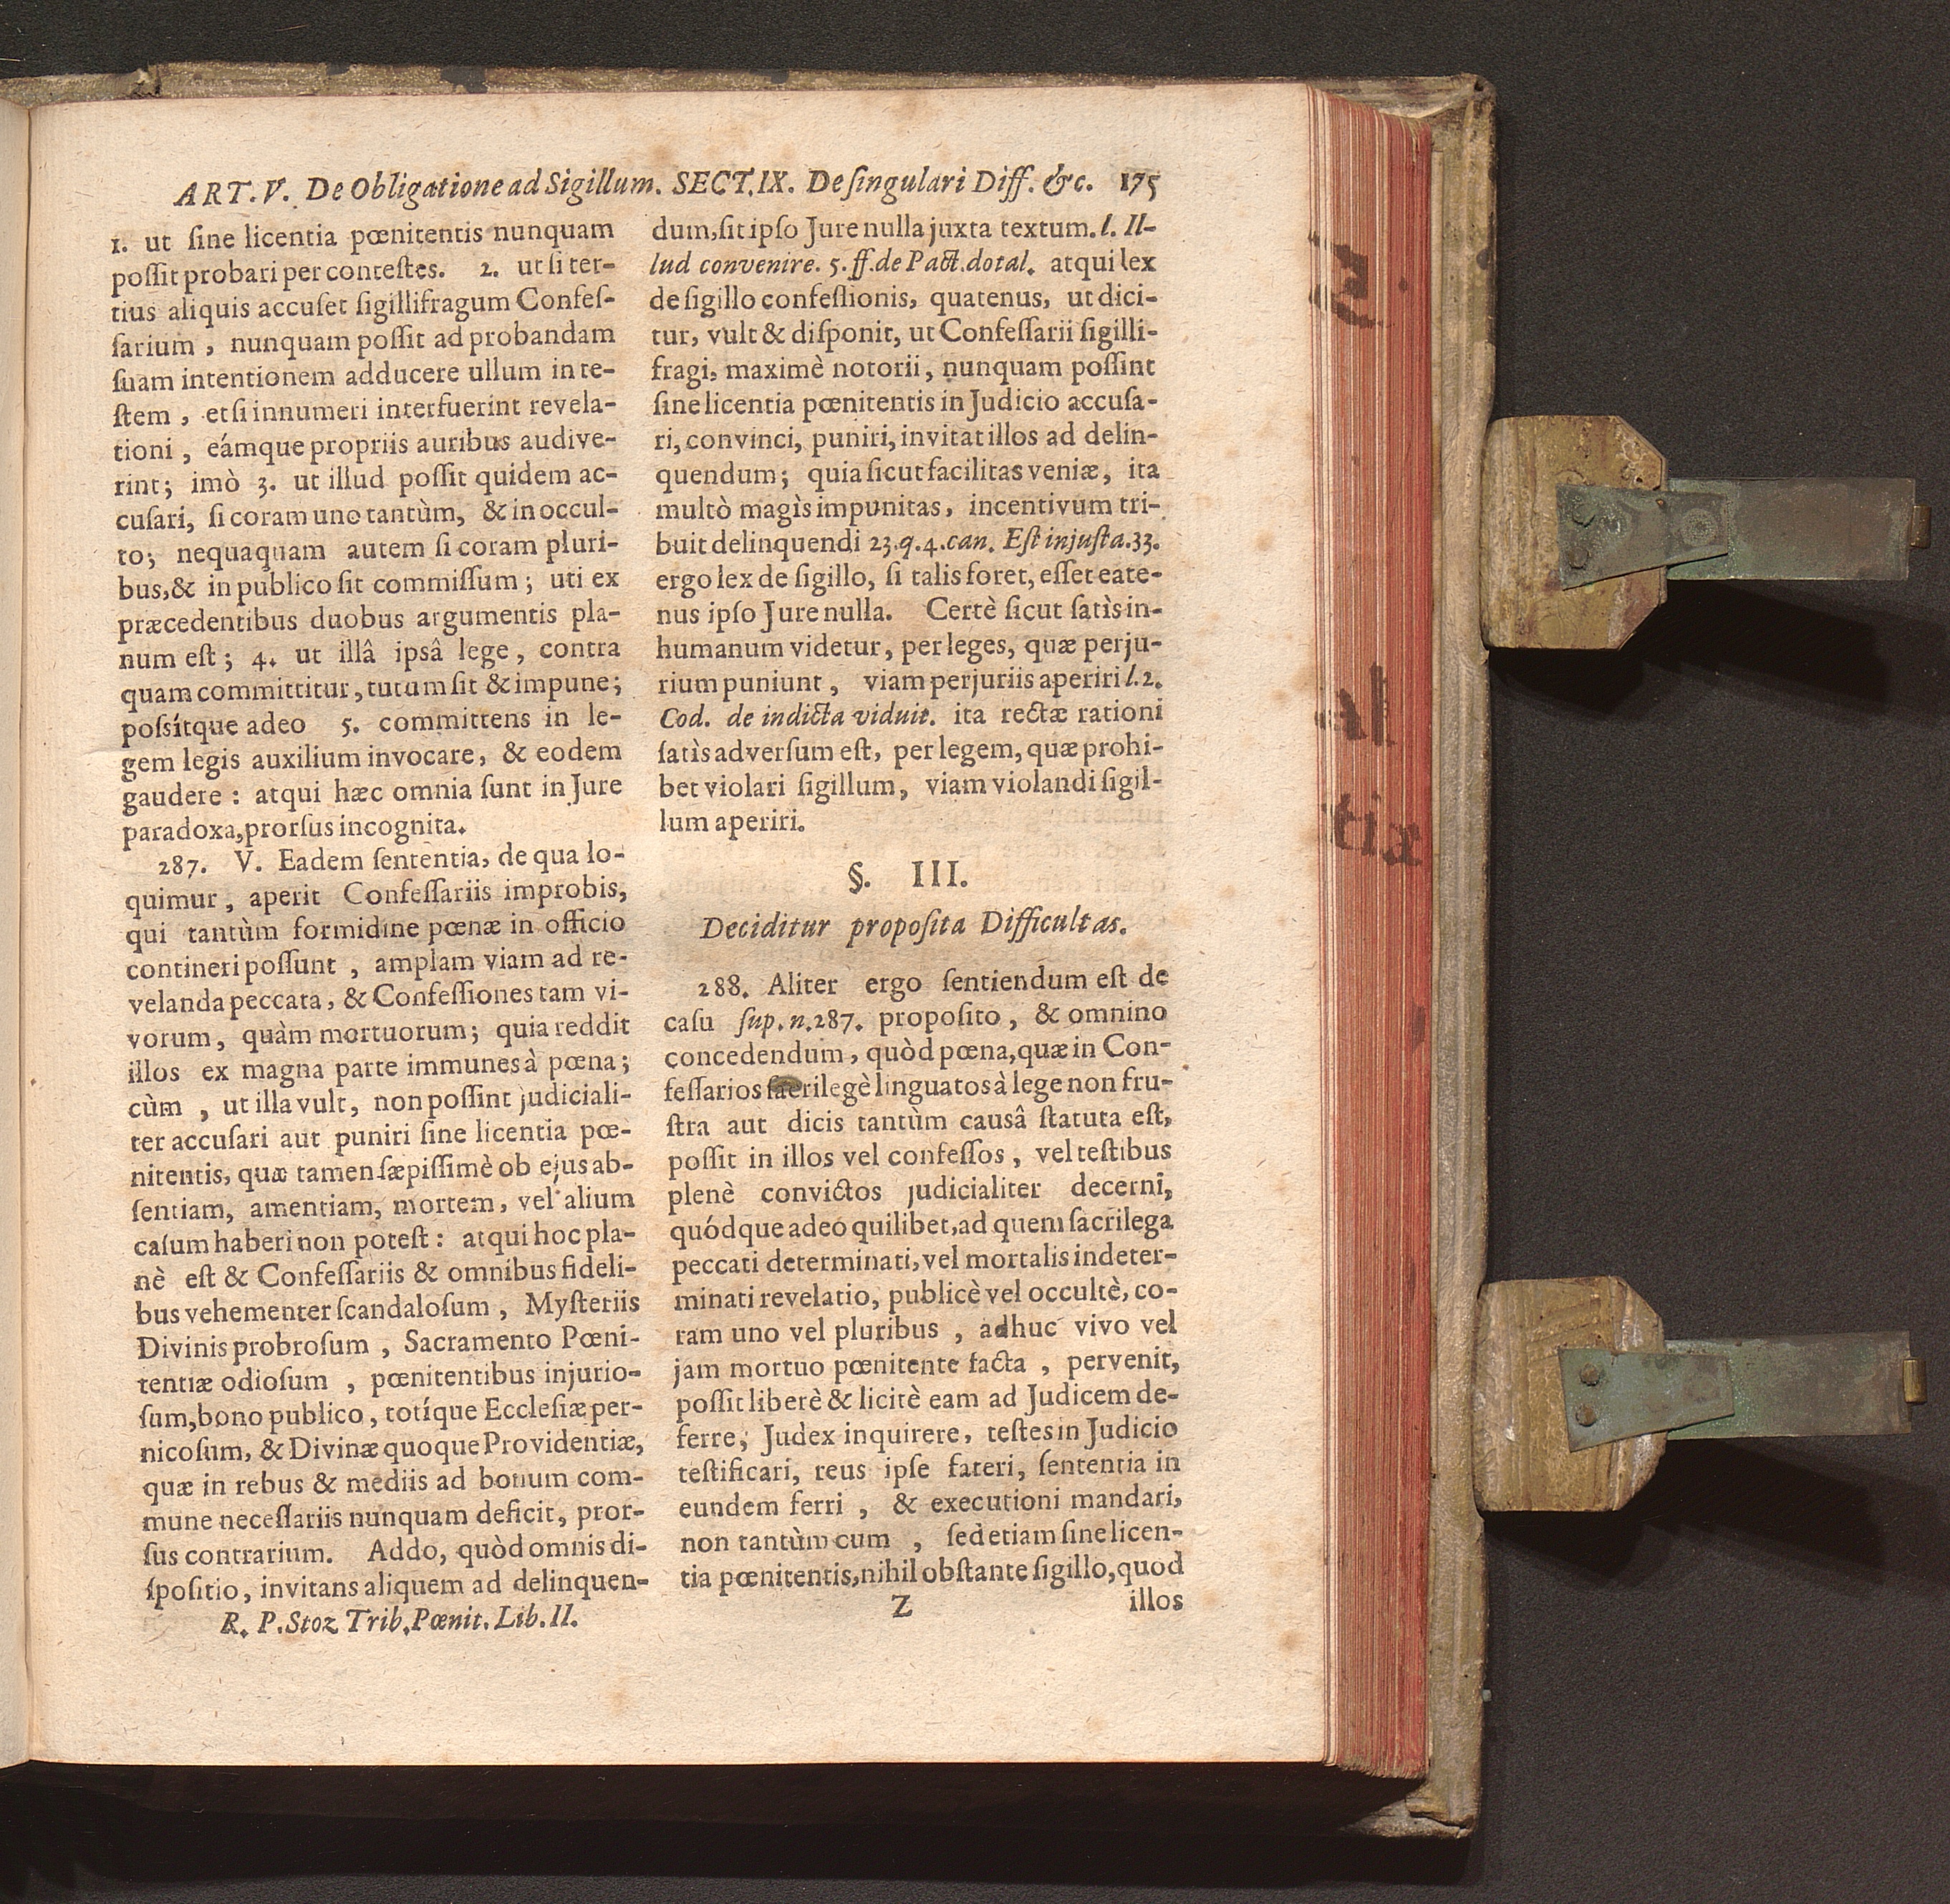 ART. V. De Obligatione ad Sigillum. SECT. IX. De ſingulari Diff. &c. 175
1. ut ſine licentia pœnitentis nunquam
poſſit probari per conteſtes. 2. ut ſi ter-
tius aliquis accuſet ſigillifragum Confeſ-
ſarium, nunquam poſſit ad probandam
ſuam intentionem adducere ullum in te-
ſtem, etſi innumeri interfuerint revela-
tioni, eámque propriis auribus audive-
rint; imò 3. ut illud poſſit quidem ac-
cuſari, ſi coram uno tantùm, & in occul-
to; nequaquam autem ſi coram pluri-
bus, & in publico ſit commiſſum; uti ex
præcedentibus duobus argumentis pla-
num eſt; 4. ut illâ ipsâ lege, contra
quam committitur, tutum ſit & impune;
poſsítque adeo 5. committens in le-
gem legis auxilium invocare, & eodem
gaudere: atqui hæc omnia ſunt in Jure
paradoxa, prorſus incognita.
287. V. Eadem ſententia, de qua lo-
quimur, aperit Confeſſariis improbis,
qui tantùm formidine pœnæ in officio
contineri poſſunt, amplam viam ad re-
velanda peccata, & Confeſſiones tam vi-
vorum, quàm mortuorum; quia reddit
illos ex magna parte immunes à pœna;
cùm, ut illa vult, non poſſint judiciali-
ter accuſari aut puniri ſine licentia pœ-
nitentis, quæ tamen ſæpiſſimè ob ejus ab-
ſentiam, amentiam, mortem, vel alium
caſum haberi non poteſt: atqui hoc pla-
nè eſt & Confeſſariis & omnibus fideli-
bus vehementer ſcandaloſum, Myſteriis
Divinis probroſum, Sacramento Pœni-
tentiæ odioſum, pœnitentibus injurio-
ſum, bono publico, totíque Eccleſiæ per-
nicoſum, & Divinæ quoque Providentiæ,
quæ in rebus & mediis ad bonum com-
mune neceſſariis nunquam deficit, pror-
ſus contrarium. Addo, quòd omnis di-
ſpoſitio, invitans aliquem ad delinquen-
R. P. Stoz Trib. Pœnit. Lib. II.
dum, ſit ipſo Jure nulla juxta textum. l. Il-
lud convenire. 5. ff. de Pact. dotal. atqui lex
de ſigillo confeſſionis, quatenus, ut dici-
tur, vult & diſponit, ut Confeſſarii ſigilli-
fragi, maximè notorii, nunquam poſſint
ſine licentia pœnitentis in Judicio accuſa-
ri, convinci, puniri, invitat illos ad delin-
quendum; quia ſicut facilitas veniæ, ita
multò magìs impunitas, incentivum tri-
buit delinquendi 23. q. 4. can. Eſt injuſta. 33.
ergo lex de ſigillo, ſi talis foret, eſſet eate-
nus ipſo Jure nulla. Certè ſicut ſatìs in-
humanum videtur, per leges, quæ perju-
rium puniunt, viam perjuriis aperiri l. 2.
Cod. de indicta viduit. ita rectæ rationi
ſatìs adverſum eſt, per legem, quæ prohi-
bet violari ſigillum, viam violandi ſigil-
lum aperiri.
§. III.
Deciditur propoſita Difficultas.
288. Aliter ergo ſentiendum eſt de
caſu ſup. n. 287. propoſito, & omnino
concedendum, quòd pœna, quæ in Con-
feſſarios ſacrilegè linguatos à lege non fru-
ſtra aut dicis tantùm causâ ſtatuta eſt,
poſſit in illos vel confeſſos, vel teſtibus
plenè convictos judicialiter decerni,
quódque adeo quilibet, ad quem ſacrilega
peccati determinati, vel mortalis indeter-
minati revelatio, publicè vel occultè, co-
ram uno vel pluribus, adhuc vivo vel
jam mortuo pœnitente facta, pervenit,
poſſit liberè & licitè eam ad Judicem de-
ferre, Judex inquirere, teſtes in Judicio
teſtificari, reus ipſe fateri, ſententia in
eundem ferri, & executioni mandari,
non tantùm cum, ſed etiam ſine licen-
tia pœnitentis, nihil obſtante ſigillo, quod
Z illos